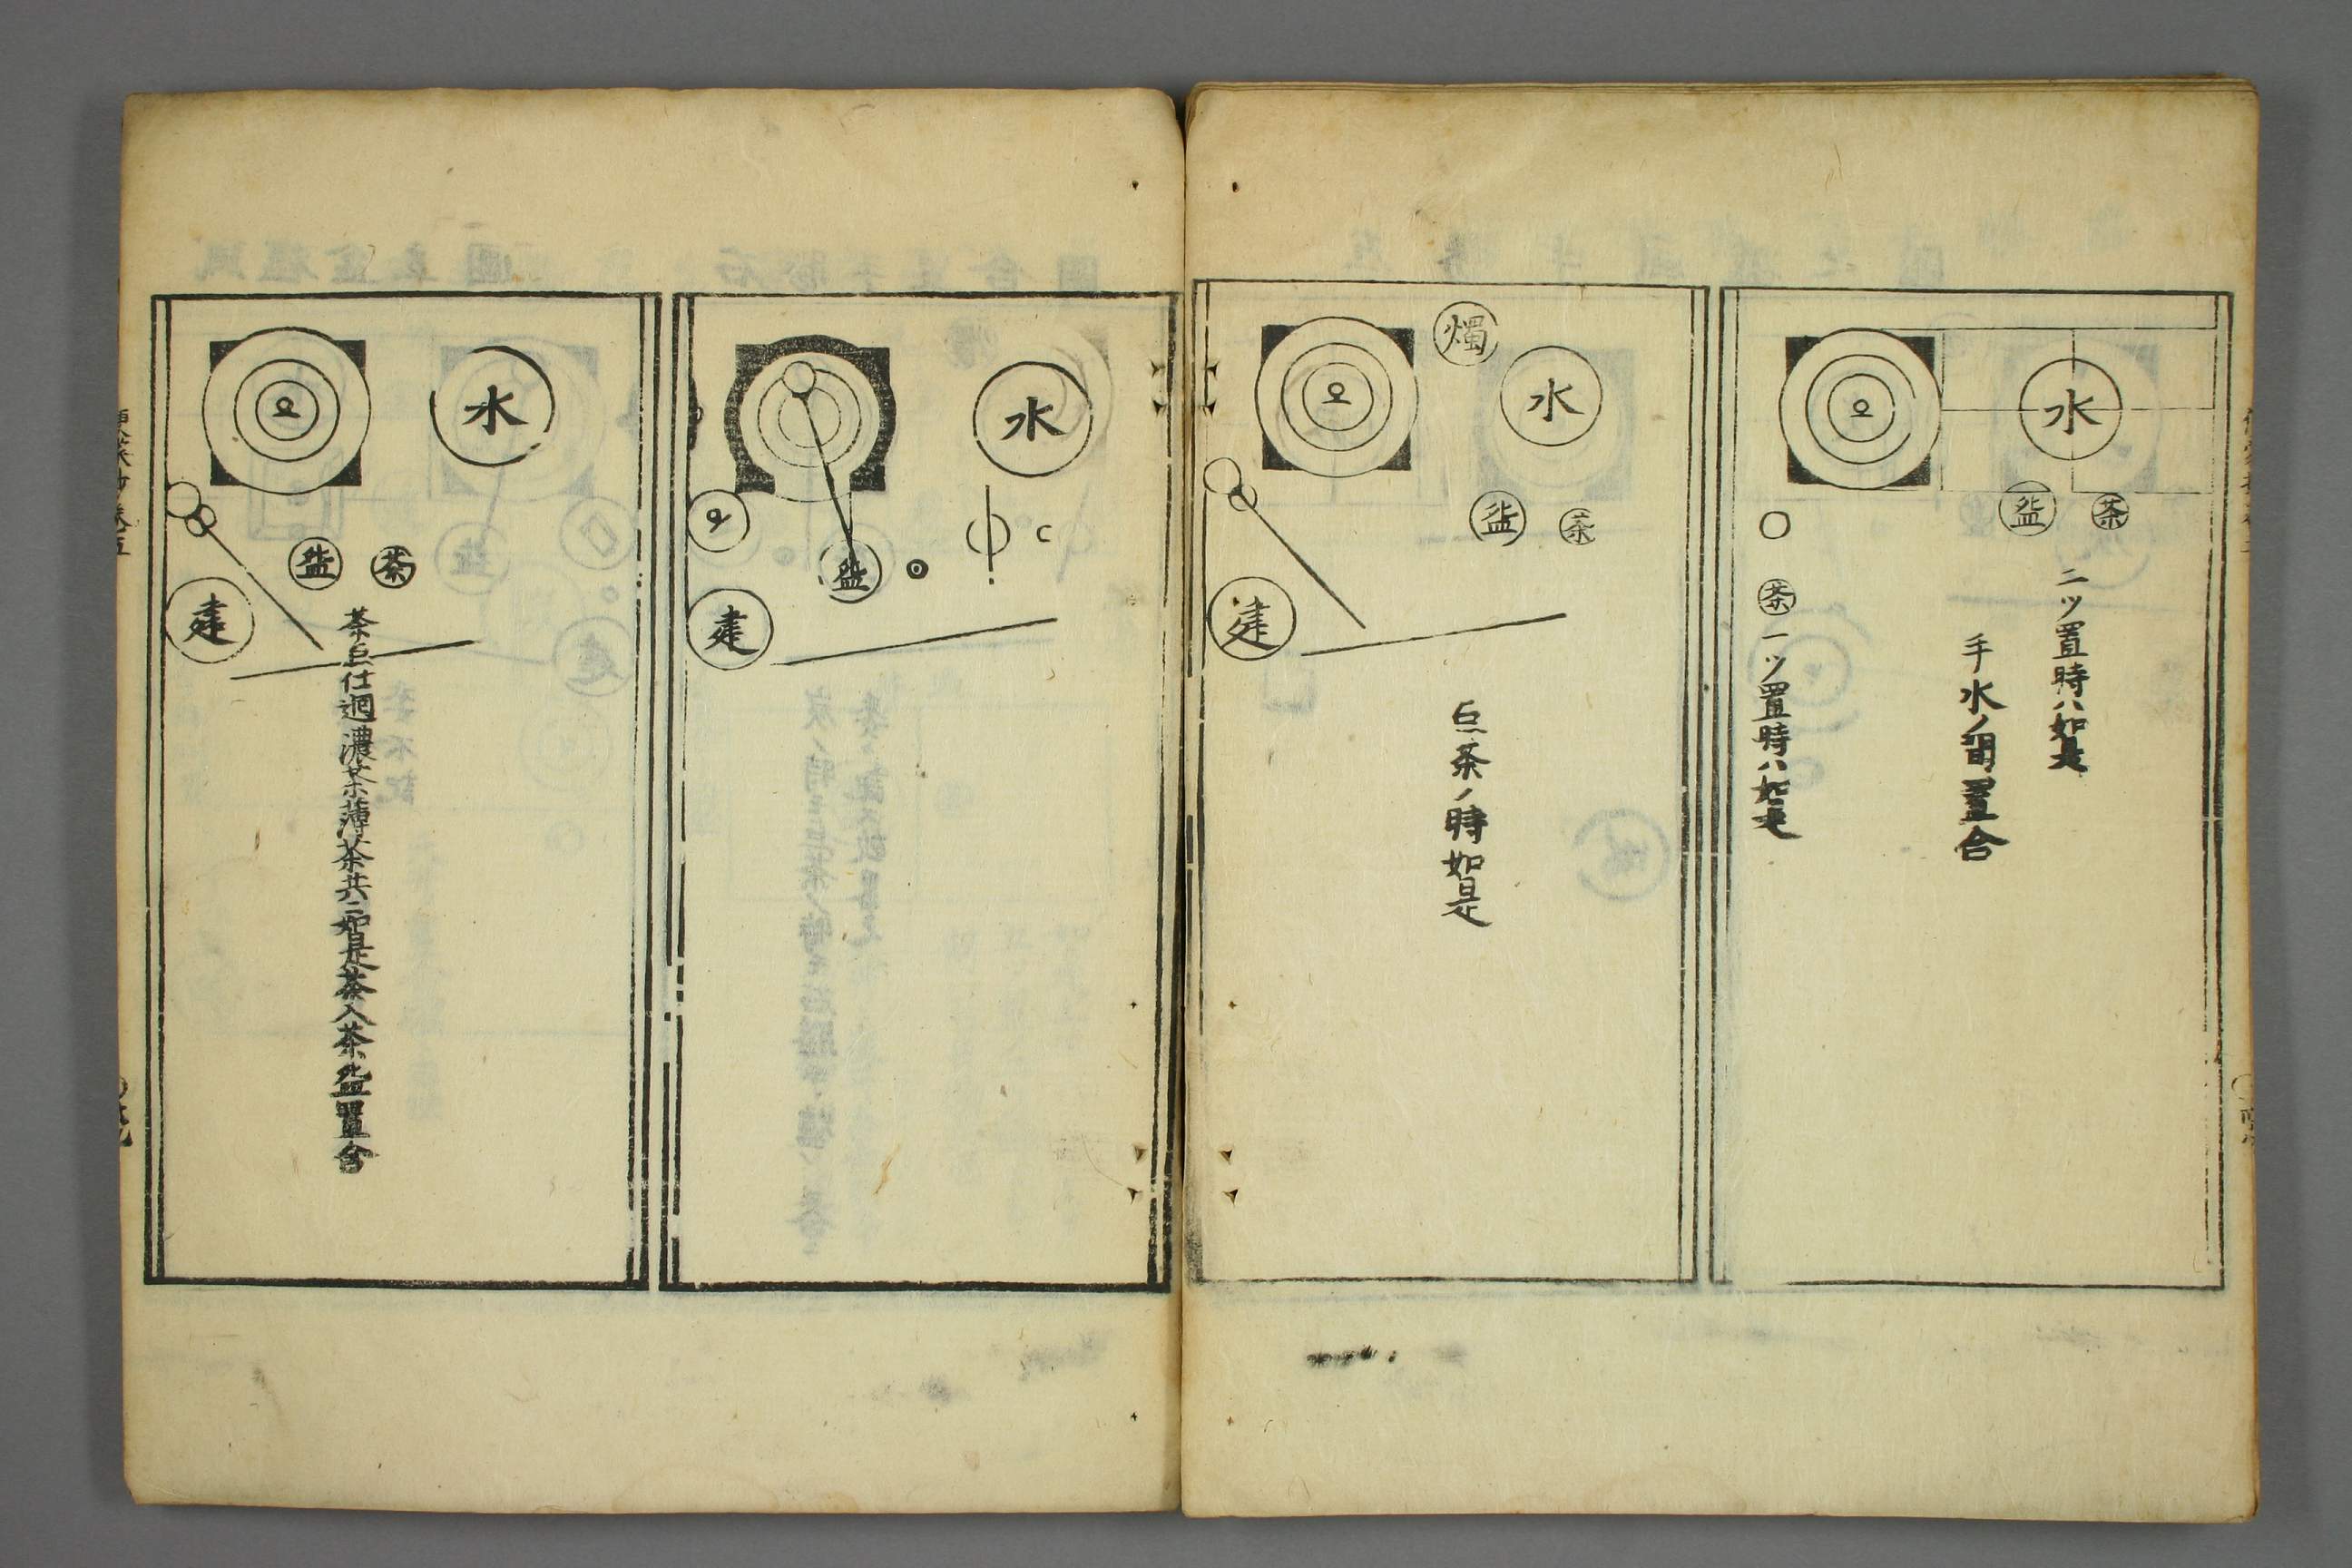 水
盌 茶
二ツ置時ハ如是
手水ノ間置合
茶 一ツ置時ハ如是
燭
水
盌 茶
建
点茶ノ時如是
水
盌
建
水
盌 茶
建
茶点仕廻濃茶薄茶共ニ如是茶入茶盌置合